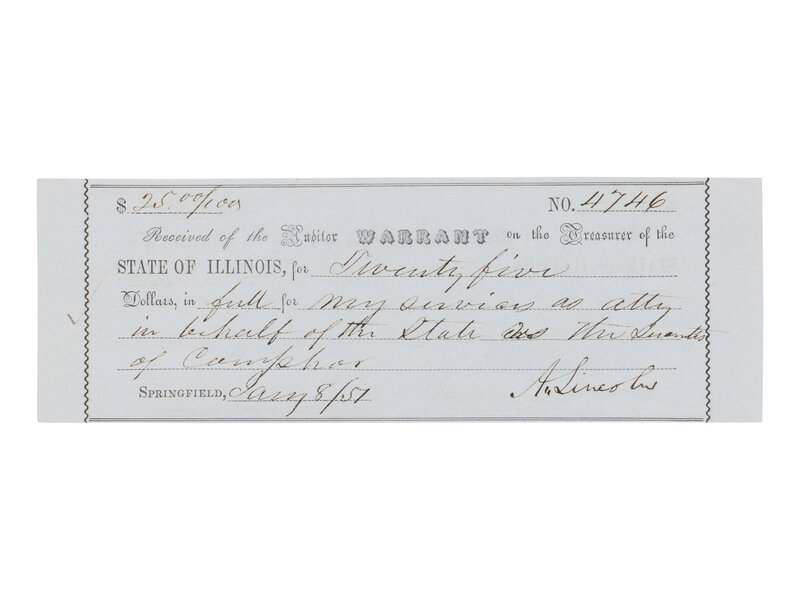 $ 25.00/100 NO. 4746
Received of the Auditor WARRANT on the Treasurer of the
STATE OF ILLINOIS, for Twenty five
Dollars, in full for my services as atty
in behalf of the State vs the
of Camphor
SPRINGFIELD, Jany 8/51 A. Lincoln